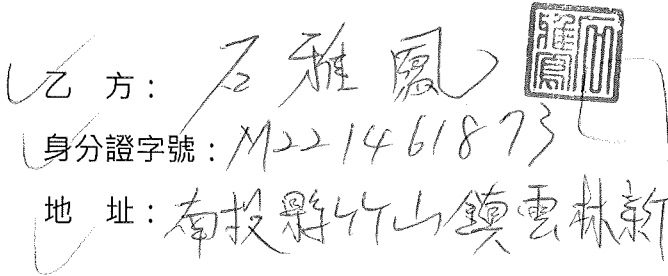 乙　方：石雅鳳
身分證字號：M221461873
地　址：南投縣竹山鎮雲林新